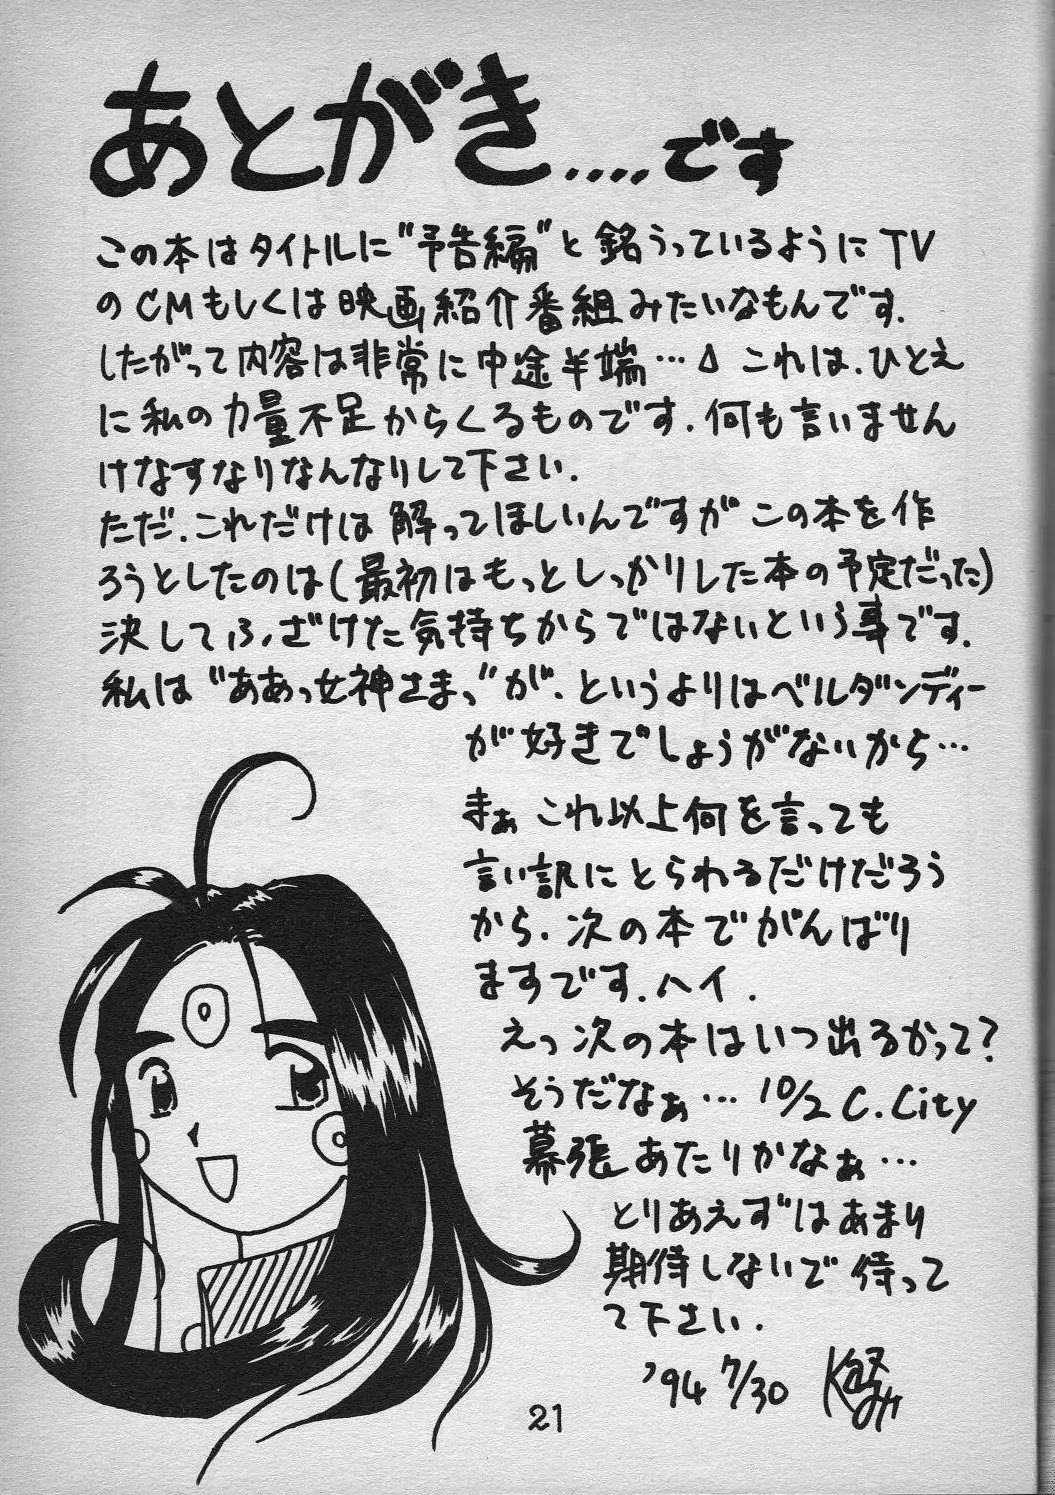 あとがき....です
この本はタイトルに"予告編"と銘うっているようにTV
のCMもしくは映画紹介番組みたいなもんです.
したがって内容は非常に中途半端… これは.ひとえ
に私の力量不足からくるものです.何も言いません
けなすなりなんなりして下さい.
ただ.これだけは解ってほしいんですがこの本を作
ろうとしたのは(最初はもっとしっかりした本の予定だった)
決してふざけた気持ちからではないという事です.
私は"ああっ女神さまっ"が.というよりはベルダンディー
が好きでしょうがないから…
まぁこれ以上何を言っても
言い訳にとられるだけだろう
から.次の本でがんばり
ますです.ハイ.
えっ次の本はいつ出るかって?
そうだなぁ…10/2 C.City
幕張あたりかなぁ…
とりあえずはあまり
期待しないで待って
て下さい.
'94 7/30
21